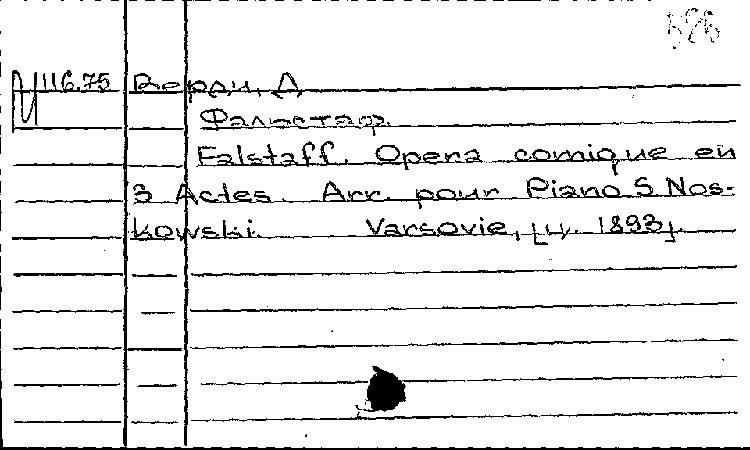 526
116.75 Верди, Д
Фальстаф.
Falstaff. Opera comique en
3 Actes. Arr. pour Piano S Nos-
kowski. Varsovie, [ц. 1893].